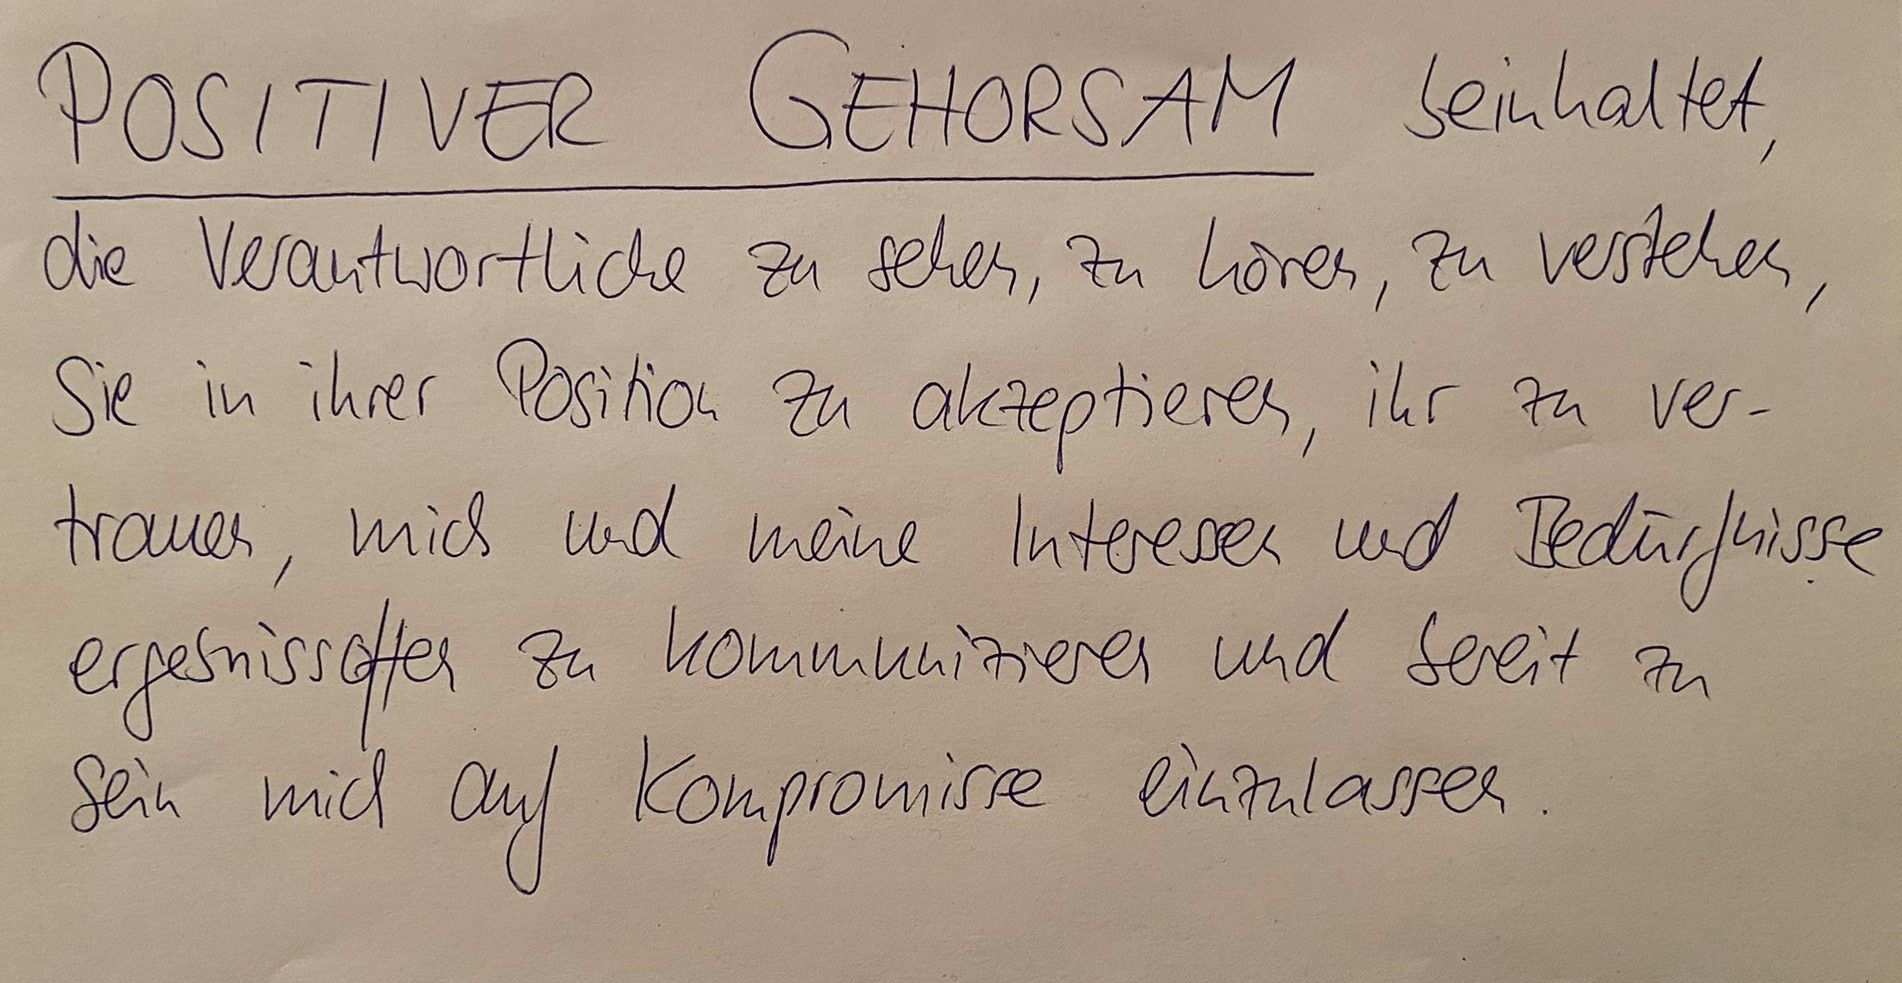 POSITIVER GEHORSAM beinhaltet,
die Verantwortliche zu sehen, zu hören, zu verstehen,
Sie in ihrer Position zu akzeptieren, ihr zu ver-
trauen, mich und meine Interessen und Bedürfnisse
ergebnissoffen zu kommunizieren und bereit zu
sein mich auf Kompromisse einzulassen.